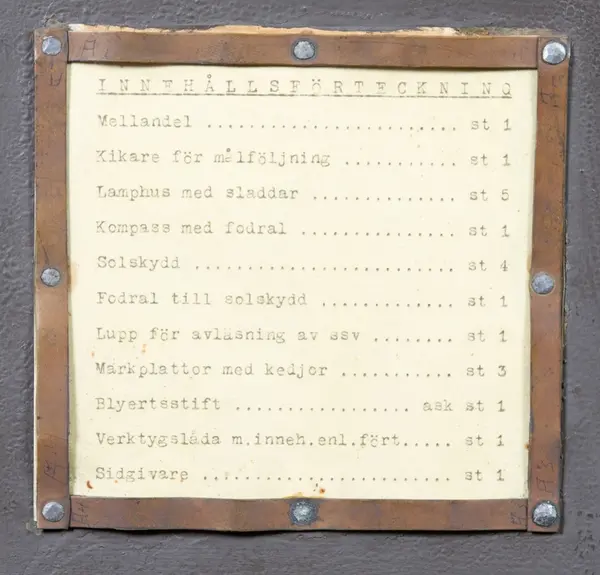 INNEHÅLLSFÖRTECKNING
Mellandel ........................ st 1
Kikare för målföljning ........... st 1
Lamphus med sladdar .............. st 5
Kompass med fodral ............... st 1
Solskydd ......................... st 4
Fodral till solskydd ............. st 1
Lupp för avläsning av ssv ........ st 1
Markplattor med kedjor ........... st 3
Blyertsstift ................ ask st 1
Verktygslåda m.inneh.enl.fört..... st 1
Sidgivare ........................ st 1